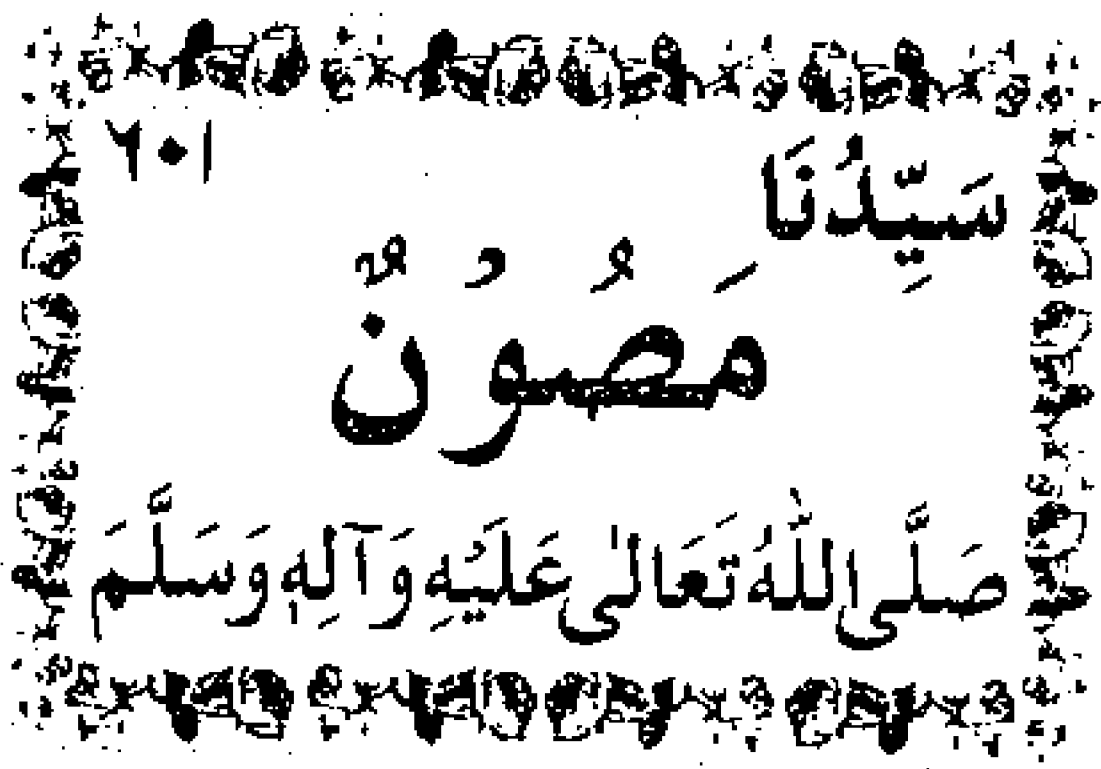 سَيِّدُنَا ٦٠١
مَصُوُنٌ
صَلَّى اللّٰهُ تَعَالٰى عَلَيْهِ وَآلِهٖ وَسَلَّمَ